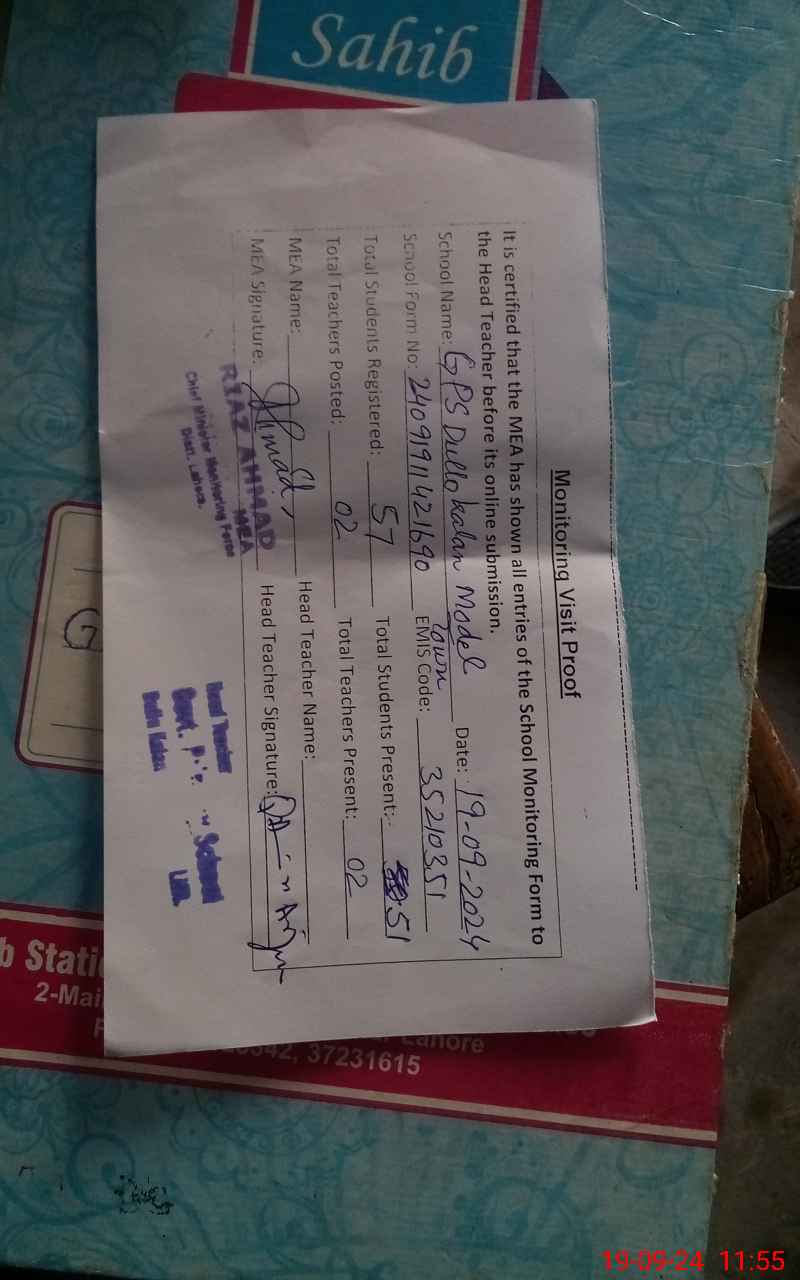 Sahib
Monitoring Visit Proof
It is certified that the MEA has shown all entries of the School Monitoring Form to
the Head Teacher before its online submission.
School Name: GPS Dullo Kalan Model Town Date: 19-09-2024
School Form No: 24091911421690 EMIS Code: 35210351
Total Students Registered: 57 Total Students Present: 51
Total Teachers Posted: 02 Total Teachers Present: 02
MEA Name: Head Teacher Name:
MEA Signature: Head Teacher Signature:
RIAZ AHMAD
MEA
Chief Minister Monitoring Force
Distt. Lahore.
Head Teacher
Govt. School
Kalan
b Stati
2-Mai
Lahore
37231615
19-09-24 11:55